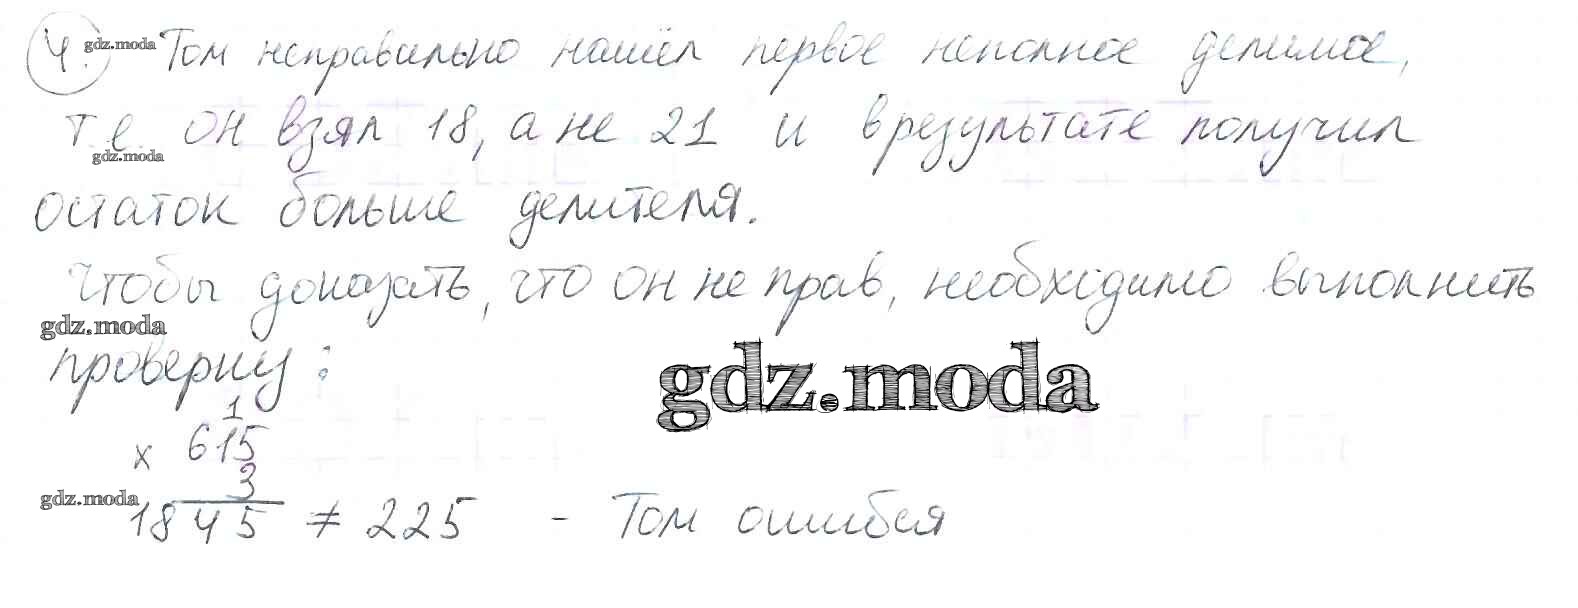 4. gdz.moda Том неправильно нашёл первое неполное делимое,
т.е. он взял 18, а не 21 и в результате получил
gdz.moda
остаток больше делителя.
Чтобы доказать, что он не прав, необходимо выполнить
gdz.moda
проверку:
gdz.moda
1
x 615
3
gdz.moda
1845 ≠ 225 - Том ошибся